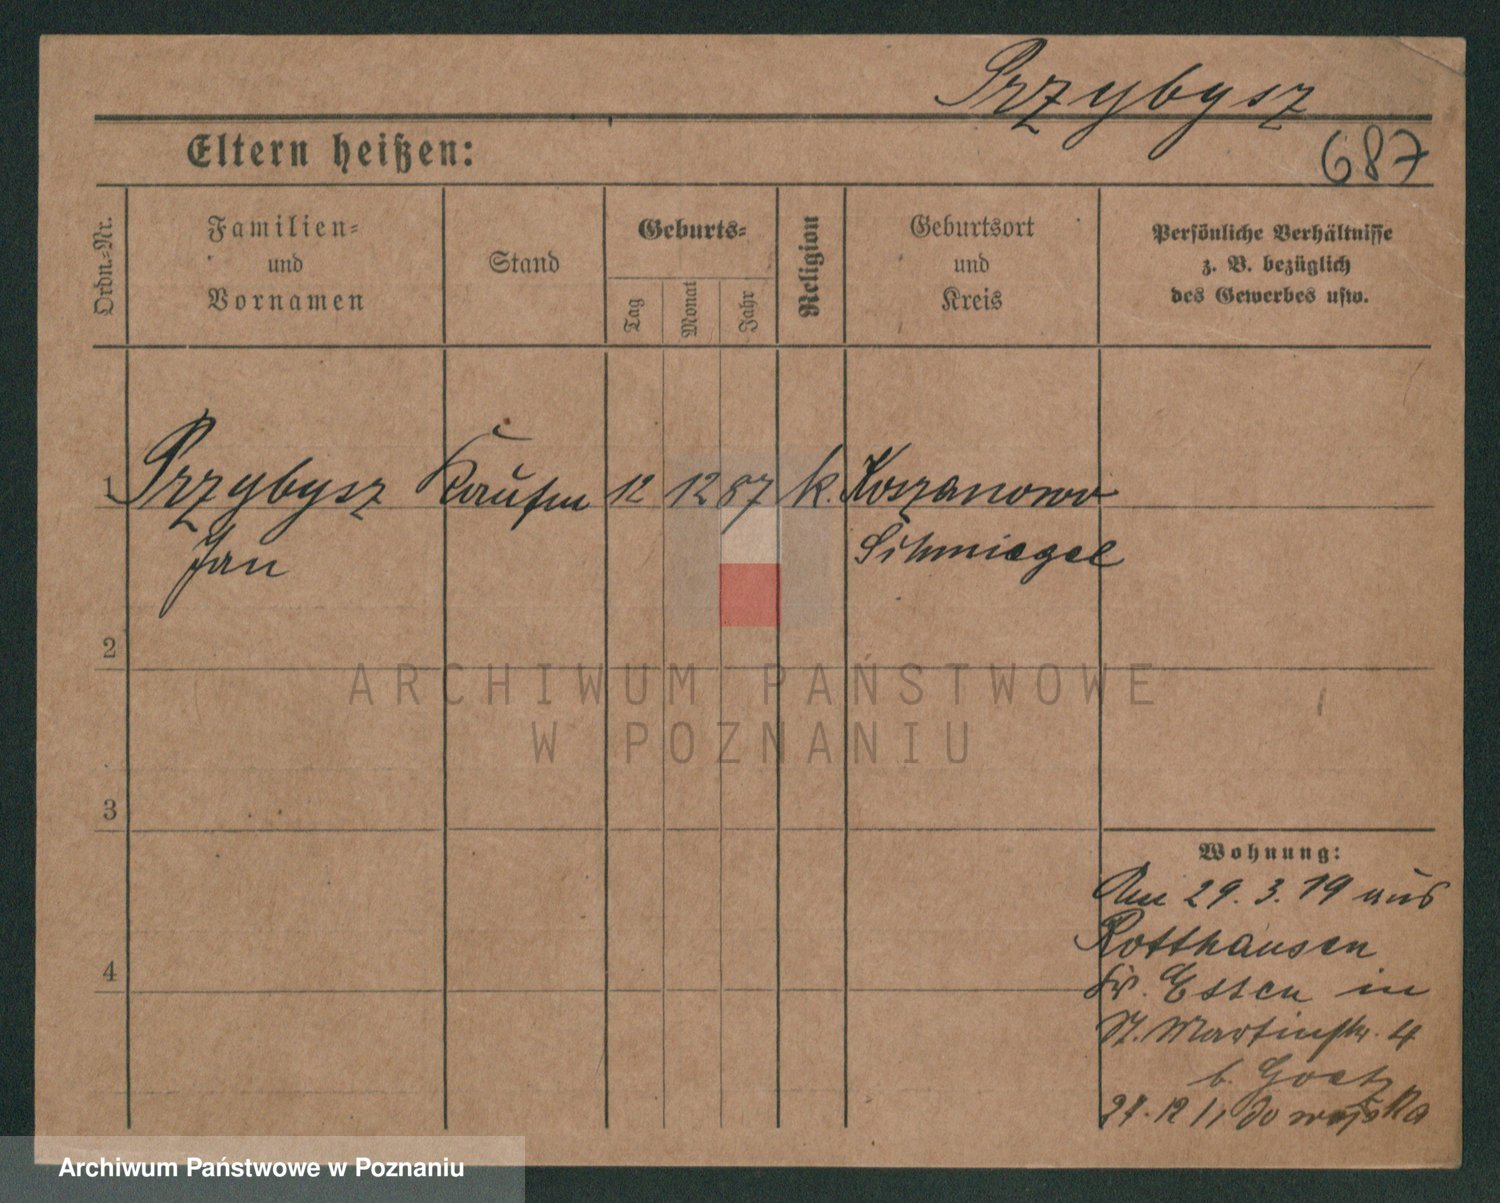 Przybysz
Eltern heißen:
687
Ordn.-Nr.
Familien-
und
Vornamen
Stand
Geburts-
Tag
Monat
Jahr
Religion
Geburtsort
und
Kreis
Persönliche Verhältnisse
z. B. bezüglich
des Gewerbes usw.
1 Przybysz Kaufm 12 12 87 k. Koszanowo
Jan Schmiegel
2
ARCHIWUM PAŃSTWOWE
W POZNANIU
3
Wohnung:
Am 29. 3. 19 aus
Rotthausen
Kr. Essen in
St. Martinstr. 4
b. Goetz
4
27. 12 do wojska
Archiwum Państwowe w Poznaniu